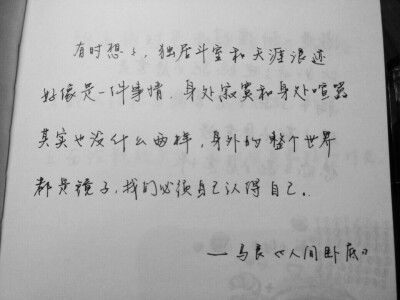 有时想想，独居斗室和天涯浪迹
好像是一件事情．身处寂寞和身处喧嚣
其实也没什么两样，身外的整个世界
都是镜子，我们必须自己认得自己．
——马良《人间卧底》